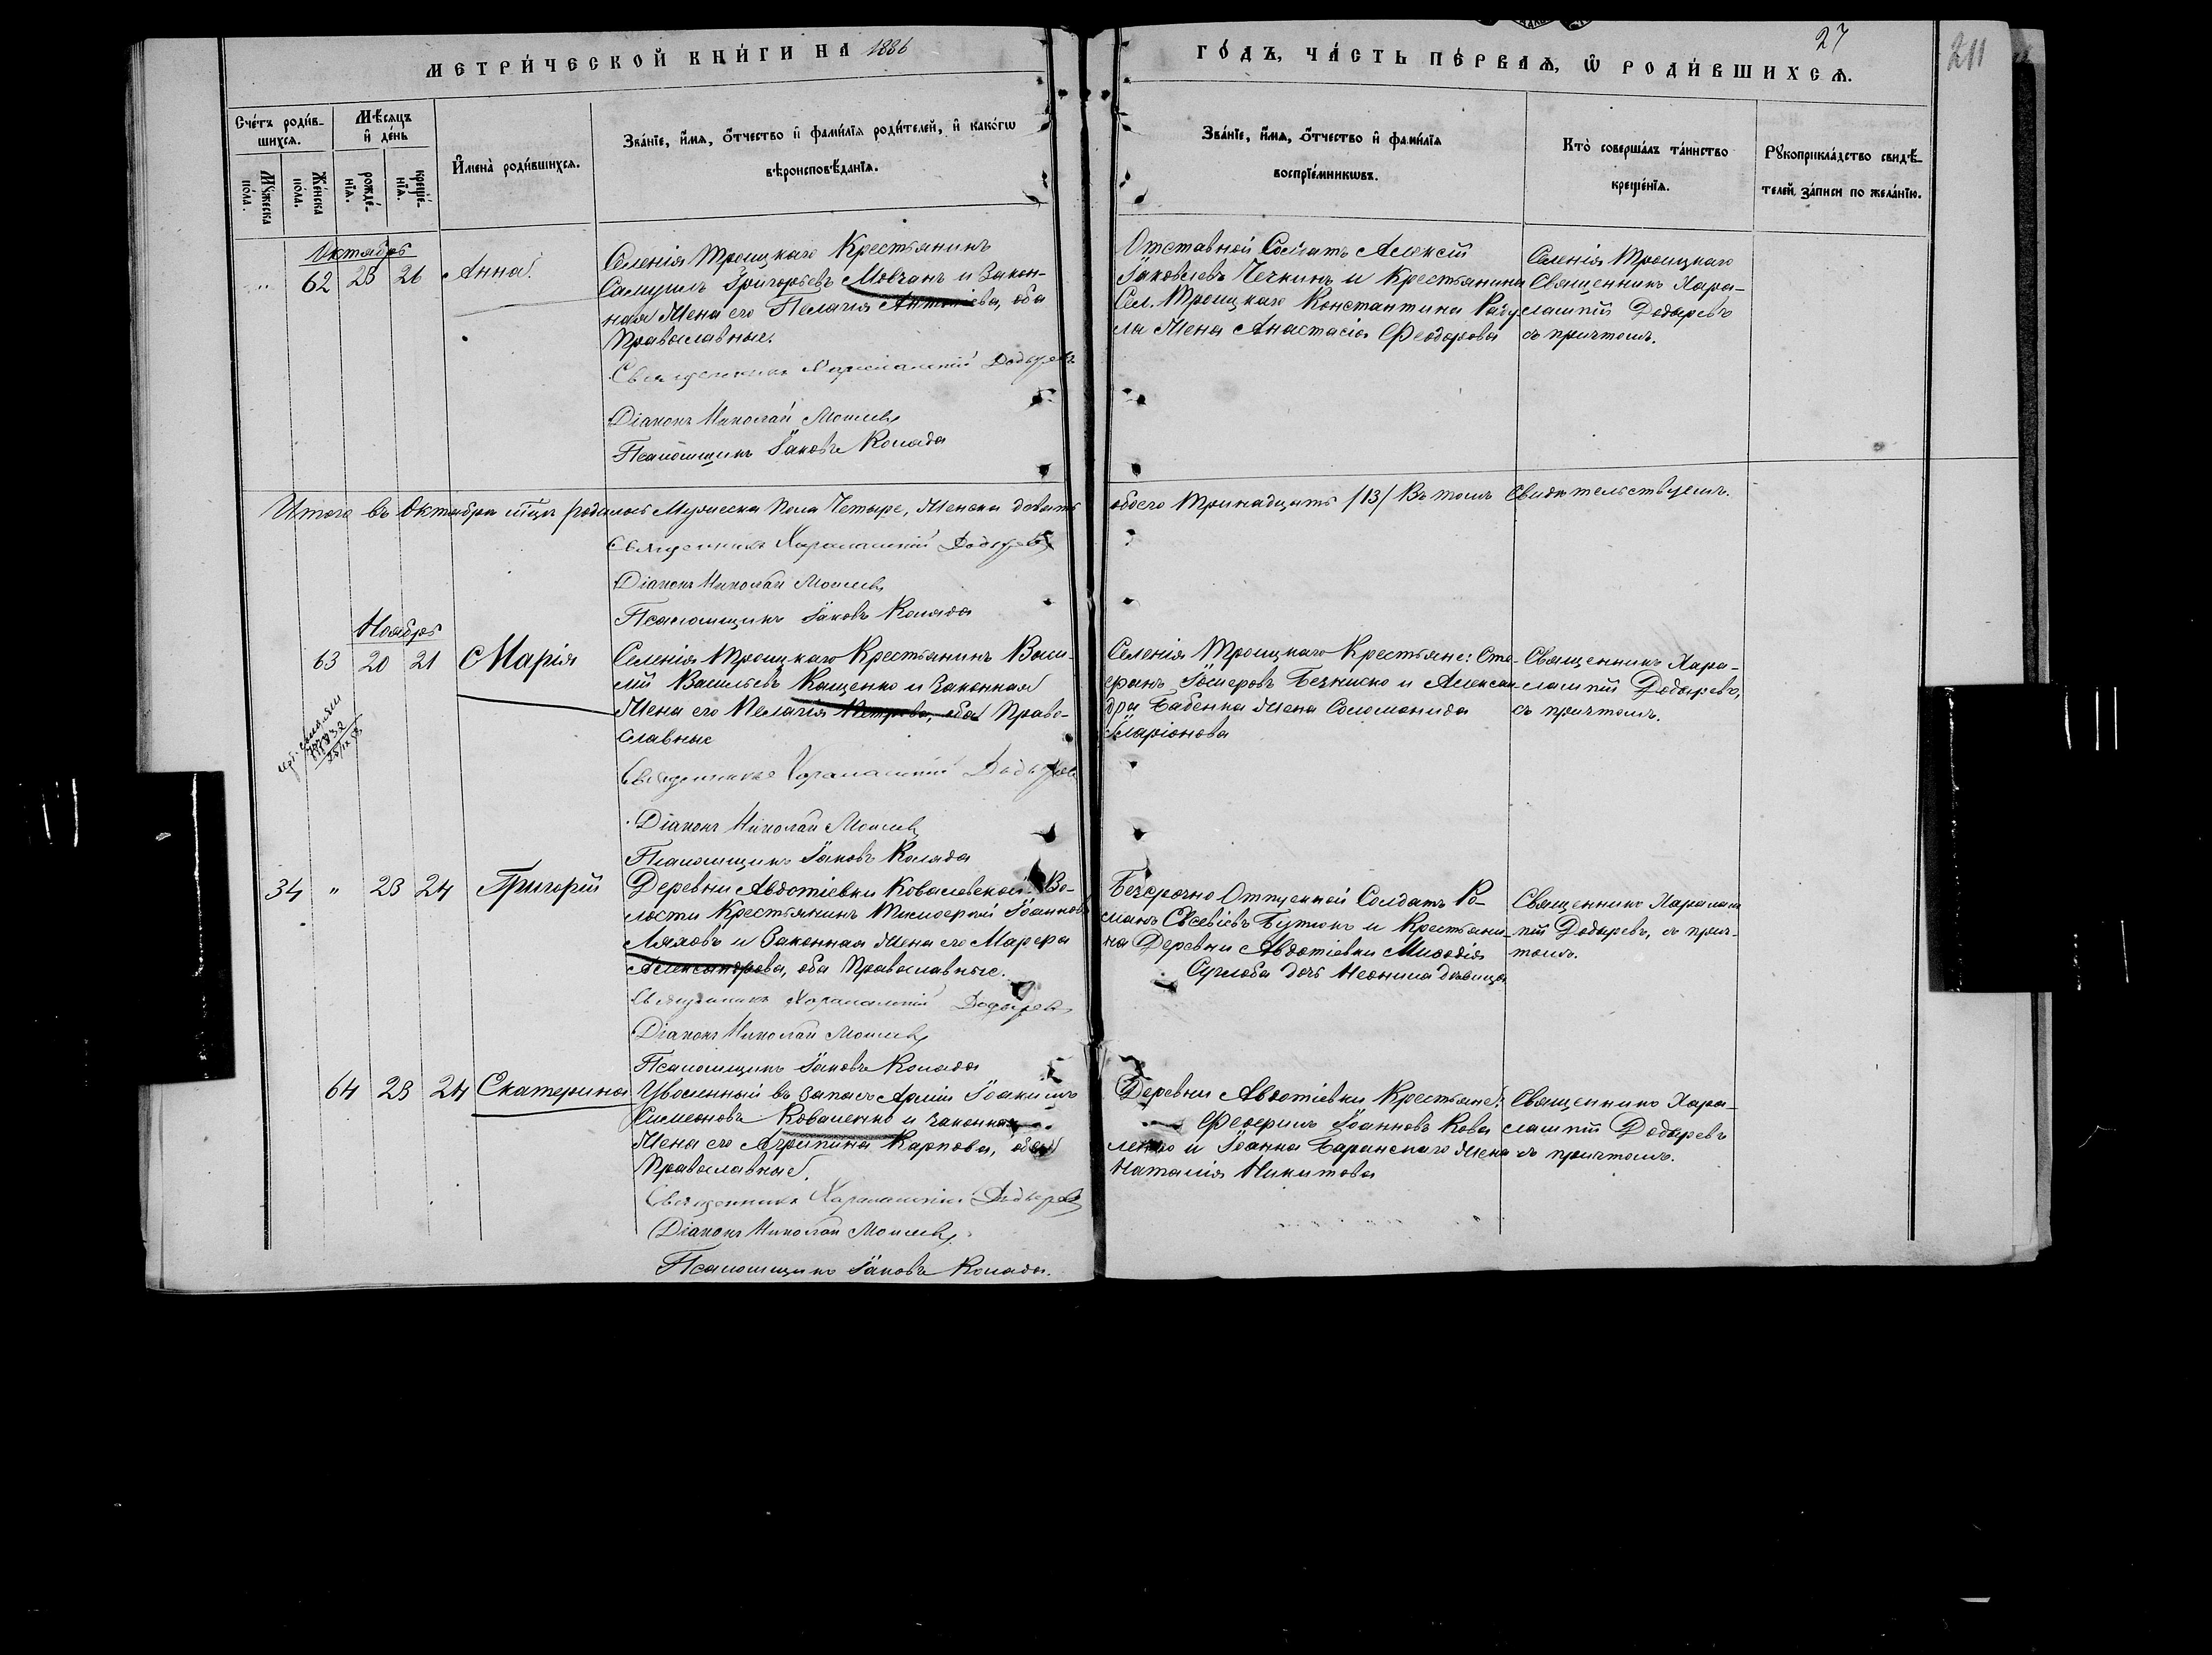 МЕТРИ́ЧЕСКОЙ КНИ́ГИ НА 1886
ГО́ДЪ, ЧА́СТЬ ПЕ́РВАѦ, Ѡ РОДИ́ВШИХСѦ.
27
211
Сче́тъ роди́в-
шихсѧ.
Мꙋ́жеска
по́ла.
Же́нска
по́ла.
Мѣ́сяцъ
и де́нь
рожде́-
нїѧ.
креще́-
нїѧ.
Имена̀ роди́вшихсѧ.
Зва́нїе, и́мѧ, ѻ́тчество и фами́лїѧ роди́телей, и како́гѡ
вѣроисповѣ́данїѧ.
Зва́нїе, и́мѧ, ѻ́тчество и фами́лїѧ
воспрїе́мникѡвъ.
Кто̀ соверша́лъ та́инство
креще́нїѧ.
Рꙋкоприкла́дство свидѣ́-
телей за́писи по жела́нїю.
Октябрь
" 62 25 26 Анна
Селенія Троицкаго Крестьянинъ
Самуилъ Григорьевъ Мовчанъ и Закон-
ная Жена его Пелагія Антоніева, оба
Православные.
Священникъ Харалампій Додыревъ
Діаконъ Николай Моисеевъ
Псаломщикъ Іаковъ Коляда
Отставной Солдатъ Алексій
Іаковлевъ Чечкинъ и Крестьянина
Сел. Троицкаго Константина
Жена Анастасія Феодорова
Селенія Троицкаго
Священникъ Хара-
лампій Додыревъ
съ причтомъ.
Итого въ Октябрѣ м-цѣ родилось Мужеска Пола Четыре, Женска девять
обоего Тринадцать /13/ Въ томъ Свидѣтельствуемъ.
Священникъ Харалампій Додыревъ
Діаконъ Николай Моисеевъ
Псаломщикъ Іаковъ Коляда
Ноябрь
63 20 21 Марія
Селенія Троицкаго Крестьянинъ Васи-
лій Васильевъ Кащенко и Законная
Жена его Пелагія Петрова, оба Право-
славные
Священникъ Харалампій Додыревъ
Діаконъ Николай Моисеевъ
Псаломщикъ Іаковъ Коляда
Селенія Троицкаго Крестьяне: Сте-
фанъ Іосифовъ и Алексан-
дра Бабенка Жена Соломонида
Иларіонова
Священникъ Хара-
лампій Додыревъ,
съ причтомъ.
34 " 23 24 Григорій
Деревни Авдотіевки Ковалевской Во-
лости Крестьянинъ Тимофей Іоанновъ
Ляховъ и Законная Жена его Марѳа
Александрова, оба Православные.
Священникъ Харалампій Додыревъ
Діаконъ Николай Моисеевъ
Псаломщикъ Іаковъ Коляда
Безсрочно Отпускной Солдатъ Ро-
манъ Евсевіевъ Бутюкъ и Крестьяни-
на Деревни Авдотіевки Меѳодія
Суглоба дочь Неонила дѣвица
Священникъ Харалам-
пій Додыревъ, съ прич-
томъ.
64 23 24 Екатерина
Уволенный въ Запасъ Арміи Іоакимъ
Симеоновъ Коваленко и законная
Жена его Агрипина Карпова, оба
Православные.
Священникъ Харалампій Додыревъ
Діаконъ Николай Моисеевъ
Псаломщикъ Іаковъ Коляда.
Деревни Авдотіевки Крестьяне:
Іоанновъ Кова
ленко и Іоанна Баранскаго Жена
Наталія Никитова
Священникъ Хара-
лампій Додыревъ
съ причтомъ.